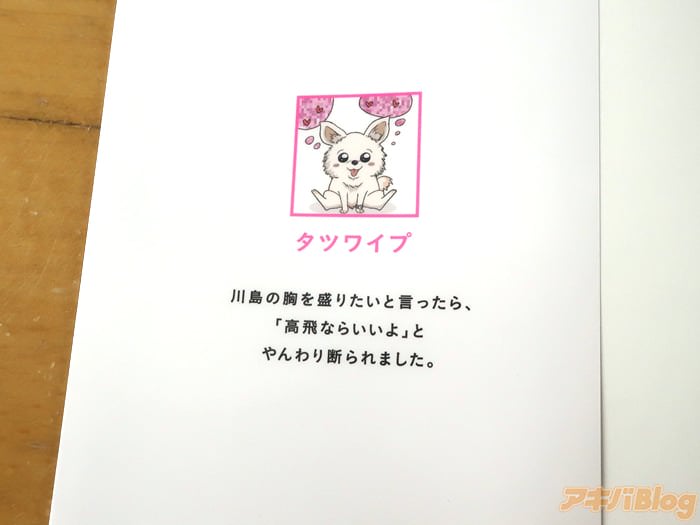 タツワイプ
川島の胸を盛りたいと言ったら、
「高飛ならいいよ」と
やんわり断られました。
アキバBlog